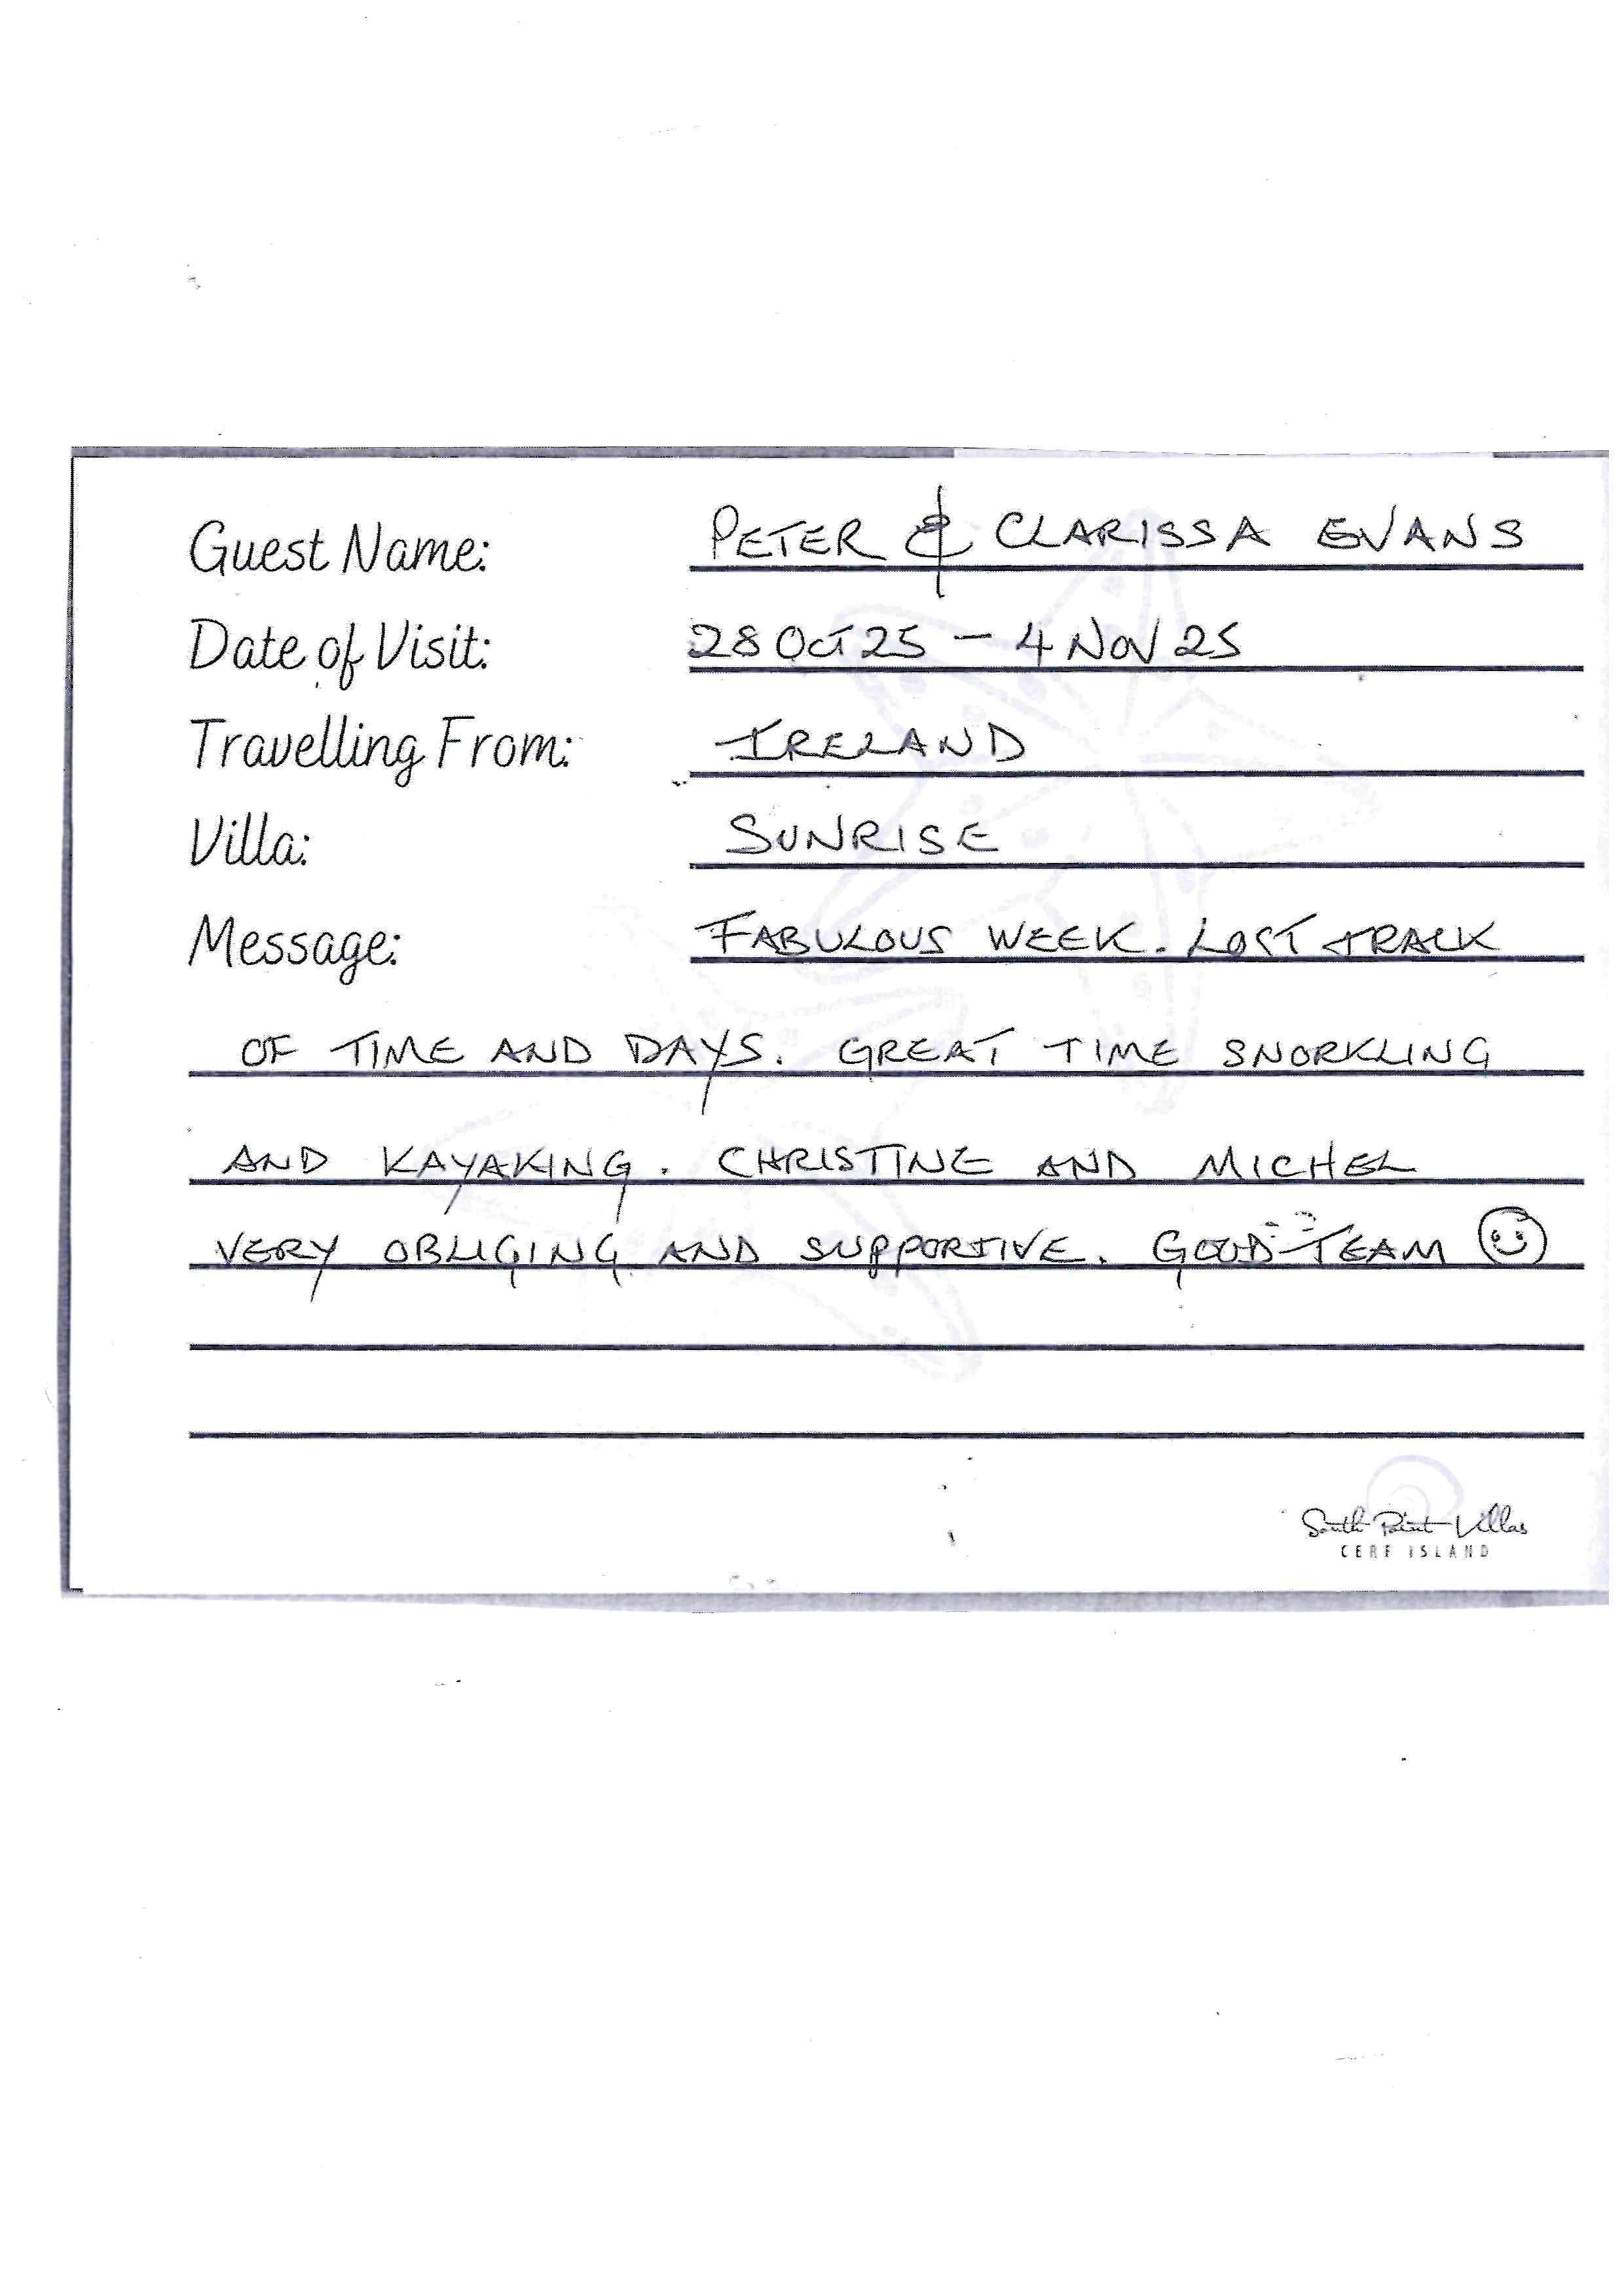 Guest Name: PETER & CLARISSA EVANS
Date of Visit: 28 OCT 25 – 4 NOV 25
Travelling From: IRELAND
Villa: SUNRISE
Message: FABULOUS WEEK. LOST TRACK
OF TIME AND DAYS. GREAT TIME SNORKLING
AND KAYAKING. CHRISTINE AND MICHEL
VERY OBLIGING AND SUPPORTIVE. GOOD TEAM ☺
South Point Villas
CERF ISLAND